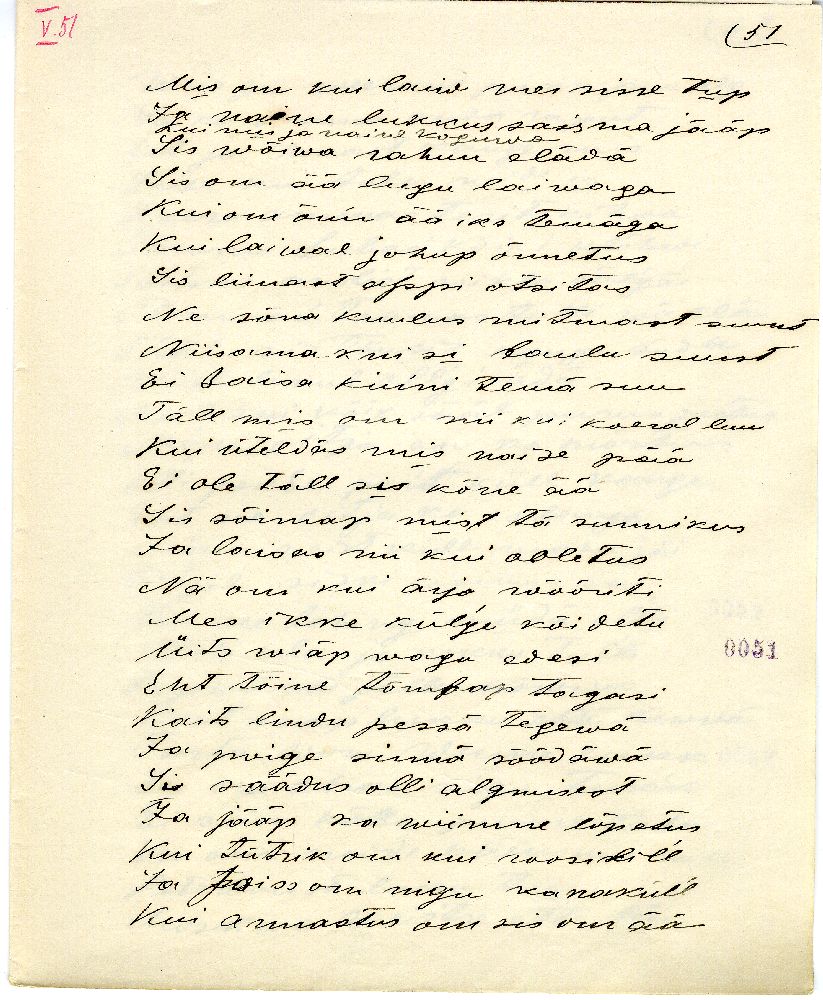 V.51
(51
Mis om kui laiw mes sisse tup
Ja naine lukkus saisma jääp
Kui mis ja naine koguwa
Sis wõiwa rahun elädä
Sis om ää lugu laiwaga
Kui om õnn ää iks temäga
Kui laiwal johup õnnetus
Sis liinast appi otsitas
Ne sõna kuulus mitmast suust
Niisama kui si laulu suust
Ei saisa kinni temä suu
Täll mis om nii kui koeral luu
Kui üteldas mis naise pää
Ei ole täll sis kõne ää
Sis sõimap mist tä sunnikus
Ja laisas nii kui obletus
Nä om kui ärjä wõõriti
Mes ikke külge köidetu
Üits wiäp wagu edesi
Eht tõine tõmbap tagasi
Kaits lindu pessä tegewä
Ja poige sinnä söödäwä
Sis säädus olli algmisest
Ja jääp ka wiimne lõpetus
Kui tütrik om kui roosilill
Ja poiss om nigu kanakull
Kui armastus om sis om ää
0051